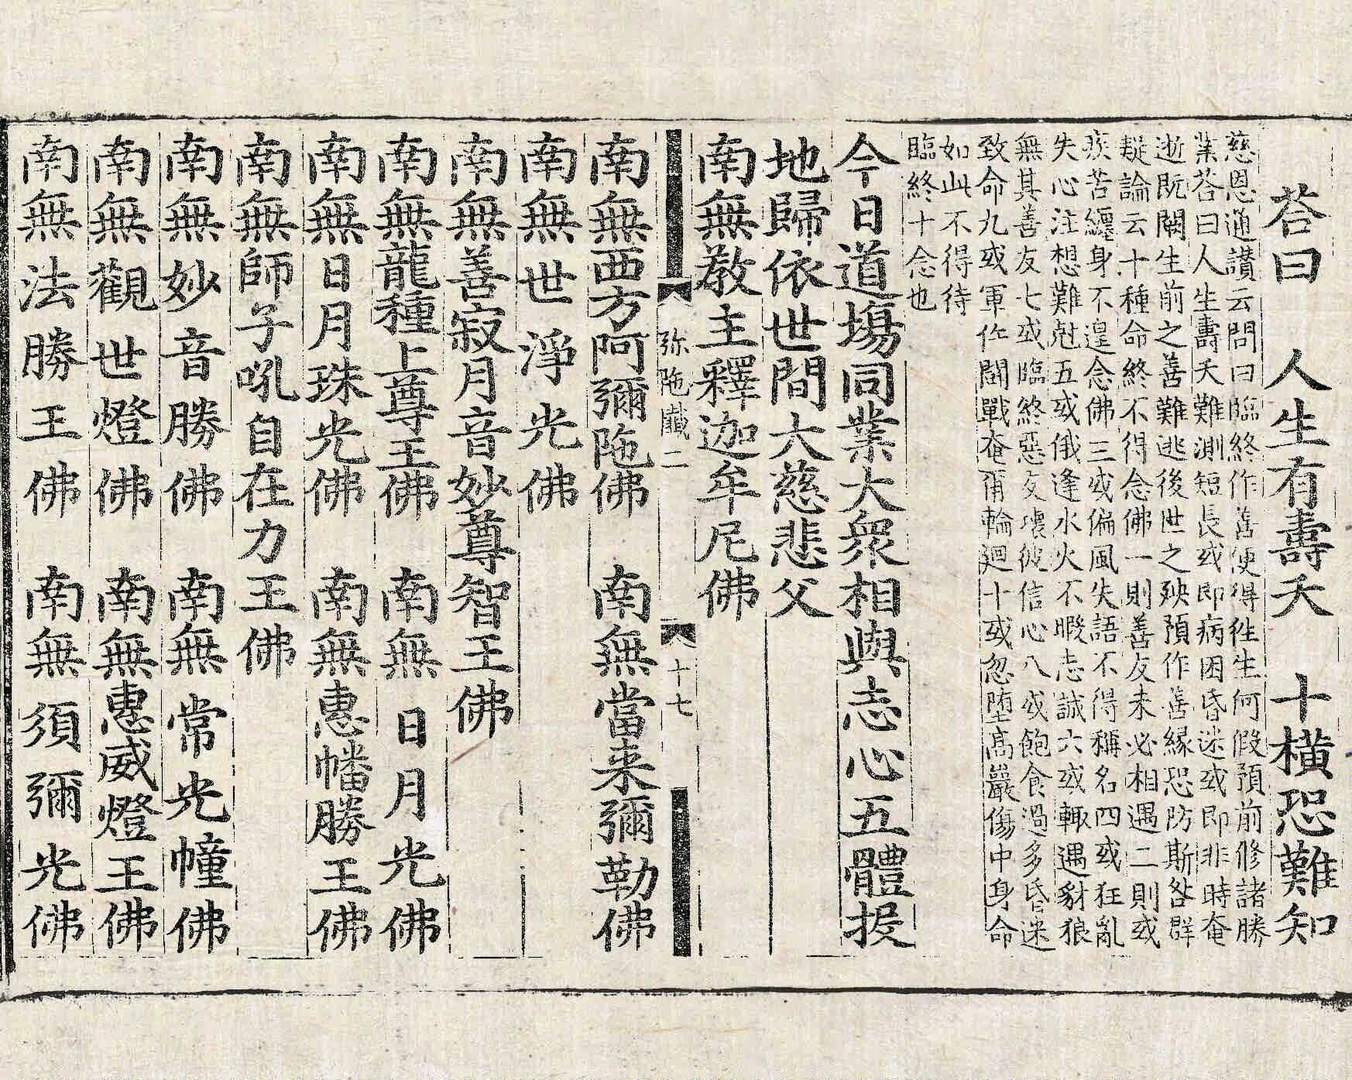 荅曰　人生有壽夭　十橫恐難知
慈恩通讃云問曰臨終作善便得徃生何假預前修諸勝
業荅曰人生壽夭難測短長或即病困昏迷或即非時奄
逝既闕生前之善難逃後世之殃預作善緣恐防斯咎群
疑論云十種命終不得念佛一則善友未必相遇二則或
疾苦纏身不遑念佛三或偏風失語不得稱名四或狂亂
失心注想難尅五或俄逢水火不暇志誠六或輙遇豺狼
無其善友七或臨終惡友壞彼信心八或飽食過多昏迷
致命九或軍伍鬪戰奄甭輪廻十或忽墮高巖傷中身命
如此不得待
臨終十念也
今日道塲同業大衆相與志心五體投
地歸依世間大慈悲父
南無教主釋迦牟尼佛
弥陁懴二　十七
南無西方阿彌陁佛　南無當来彌勒佛
南無世淨光佛
南無善寂月音妙尊智王佛
南無龍種上尊王佛　南無日月光佛
南無日月珠光佛　南無惠幡勝王佛
南無師子吼自在力王佛
南無妙音勝佛　南無常光幢佛
南無觀世燈佛　南無惠威燈王佛
南無法勝王佛　南無須彌光佛